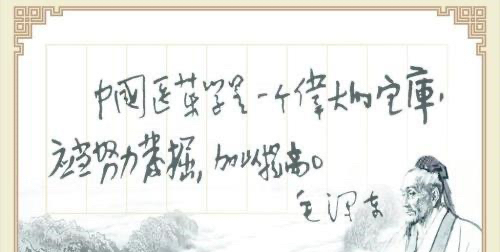 中國医药学是一个偉大的宝庫,
应当努力发掘,加以提高。
毛泽东